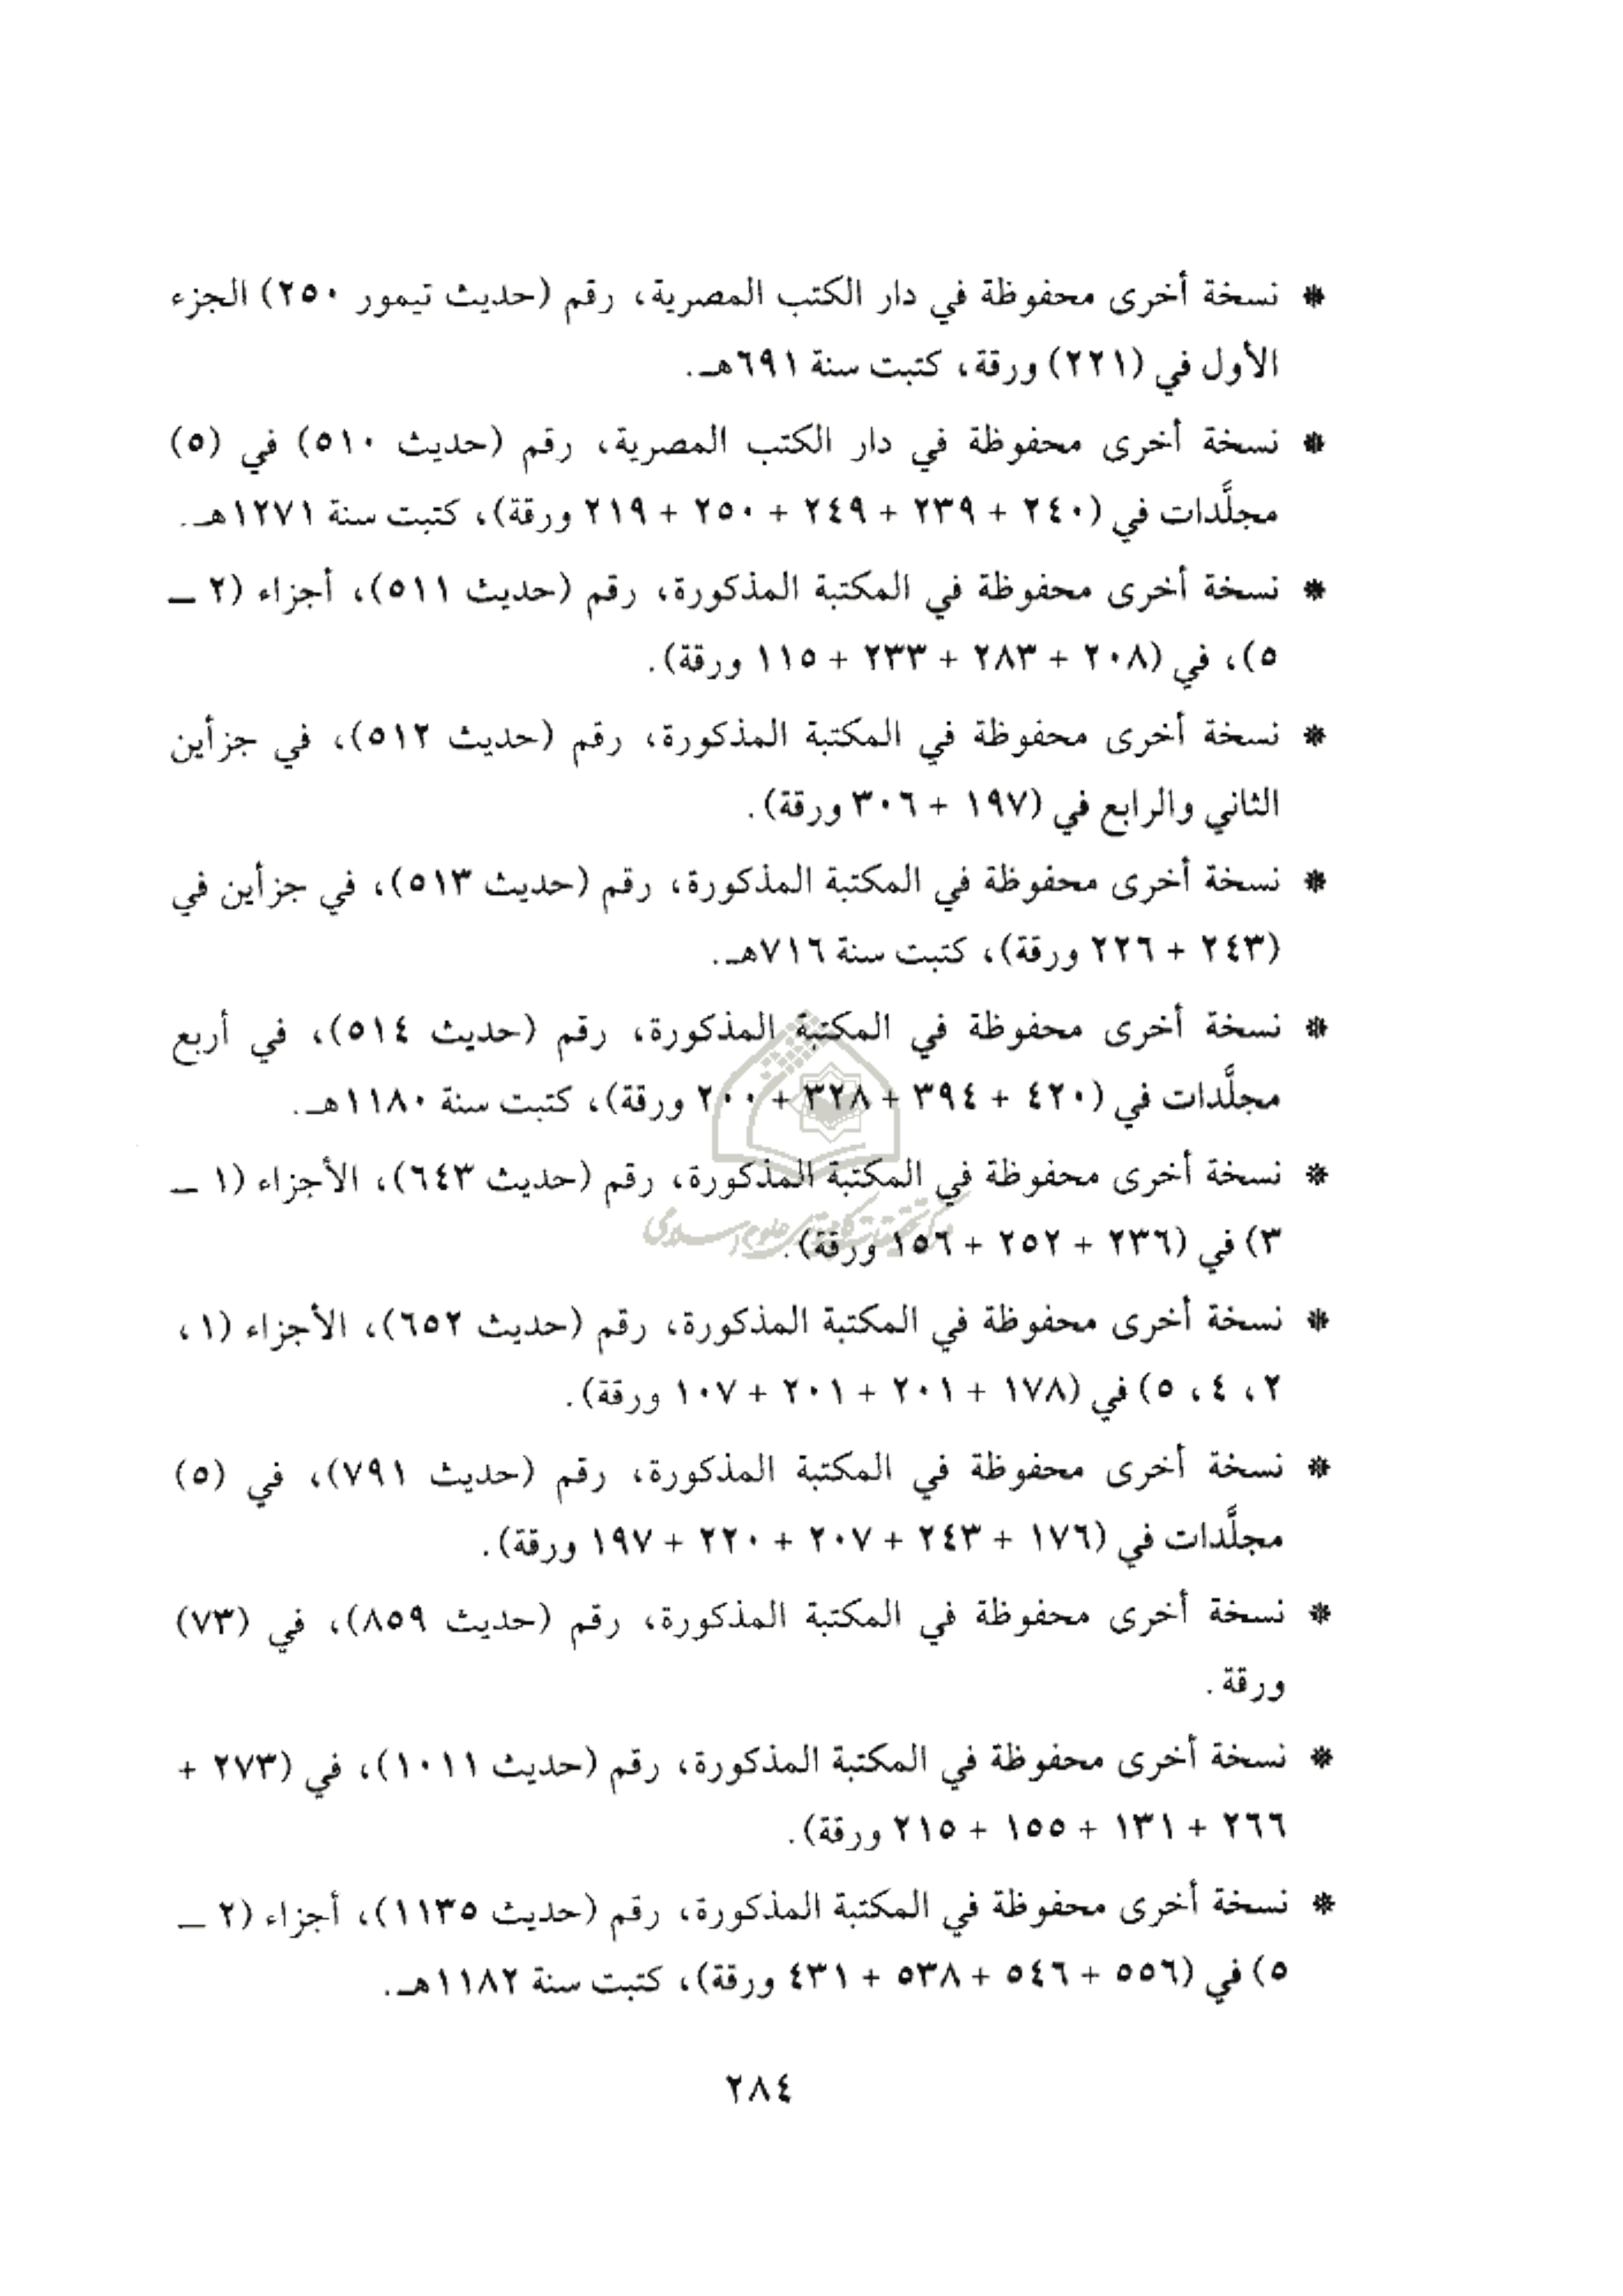 * نسخة أخرى محفوظة في دار الكتب المصرية، رقم (حديث تيمور ٢٥٠) الجزء
الأول في (٢٢١) ورقة، كتبت سنة ٦٩١هـ.
* نسخة أخرى محفوظة في دار الكتب المصرية، رقم (حديث ٥١٠) في (٥)
مجلَّدات في (٢٤٠ + ٢٣٩ + ٢٤٩ + ٢٥٠ + ٢١٩ ورقة)، كتبت سنة ١٢٧١هـ.
* نسخة أخرى محفوظة في المكتبة المذكورة، رقم (حديث ٥١١)، أجزاء (٢ ـ
٥)، في (٢٠٨ + ٢٨٣ + ٢٣٣ + ١١٥ ورقة).
* نسخة أخرى محفوظة في المكتبة المذكورة، رقم (حديث ٥١٢)، في جزأين
الثاني والرابع في (١٩٧ + ٣٠٦ ورقة).
* نسخة أخرى محفوظة في المكتبة المذكورة، رقم (حديث ٥١٣)، في جزأين في
(٢٤٣ + ٢٢٦ ورقة)، كتبت سنة ٧١٦هـ.
* نسخة أخرى محفوظة في المكتبة المذكورة، رقم (حديث ٥١٤)، في أربع
مجلَّدات في (٤٢٠ + ٣٩٤ + ٣٢٨ + ٢٠٠ ورقة)، كتبت سنة ١١٨٠هـ.
* نسخة أخرى محفوظة في المكتبة المذكورة، رقم (حديث ٦٤٣)، الأجزاء (١ ـ
٣) في (٢٣٦ + ٢٥٢ + ١٥٦ ورقة).
* نسخة أخرى محفوظة في المكتبة المذكورة، رقم (حديث ٦٥٢)، الأجزاء (١،
٢، ٤، ٥) في (١٧٨ + ٢٠١ + ٢٠١ + ١٠٧ ورقة).
* نسخة أخرى محفوظة في المكتبة المذكورة، رقم (حديث ٧٩١)، في (٥)
مجلَّدات في (١٧٦ + ٢٤٣ + ٢٠٧ + ٢٢٠ + ١٩٧ ورقة).
* نسخة أخرى محفوظة في المكتبة المذكورة، رقم (حديث ٨٥٩)، في (٧٣)
ورقة.
* نسخة أخرى محفوظة في المكتبة المذكورة، رقم (حديث ١٠١١)، في (٢٧٣ +
٢٦٦ + ١٣١ + ١٥٥ + ٢١٥ ورقة).
* نسخة أخرى محفوظة في المكتبة المذكورة، رقم (حديث ١١٣٥)، أجزاء (٢ ـ
٥) في (٥٥٦ + ٥٤٦ + ٥٣٨ + ٤٣١ ورقة)، كتبت سنة ١١٨٢هـ.
٢٨٤